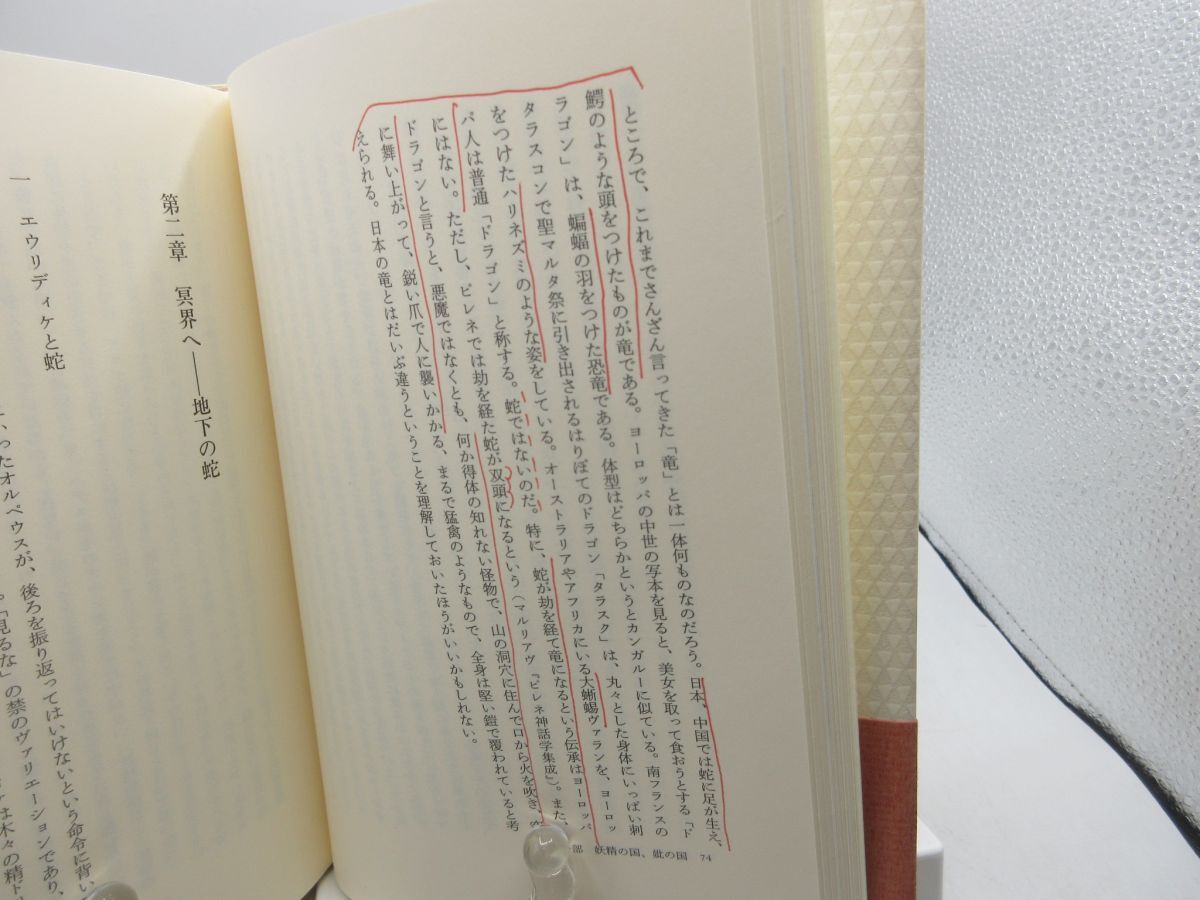 ところで、これまでさんざん言ってきた「竜」とは一体何ものなのだろう。日本、中国では蛇に足が生え、
鰐のような頭をつけたものが竜である。ヨーロッパの中世の写本を見ると、美女を取って食おうとする「ド
ラゴン」は、蝙蝠の羽をつけた恐竜である。体型はどちらかというとカンガルーに似ている。南フランスの
タラスコンで聖マルタ祭に引き出されるはりぼてのドラゴン「タラスク」は、丸々とした身体にいっぱい刺
をつけたハリネズミのような姿をしている。オーストラリアやアフリカにいる大蜥蜴ヴァランを、ヨーロッ
パ人は普通「ドラゴン」と称する。蛇ではないのだ。特に、蛇が劫を経て竜になるという伝承はヨーロッパ
にはない。ただし、ピレネでは劫を経た蛇が双頭になるという(マルリアヴ『ピレネ神話学集成』)。また、
ドラゴンと言うと、悪魔ではなくとも、何か得体の知れない怪物で、山の洞穴に住んで口から火を吹き、
に舞い上がって、鋭い爪で人に襲いかかる、まるで猛禽のようなもので、全身は堅い鎧で覆われていると考
えられる。日本の竜とはだいぶ違うということを理解しておいたほうがいいかもしれない。
部 妖精の国、妣の国 74
第二章 冥界へ――地下の蛇
一 エウリディケと蛇
ったオルペウスが、後ろを振り返ってはいけないという命令に背い
「見るな」の禁のヴァリエーションであり、
は木々の精